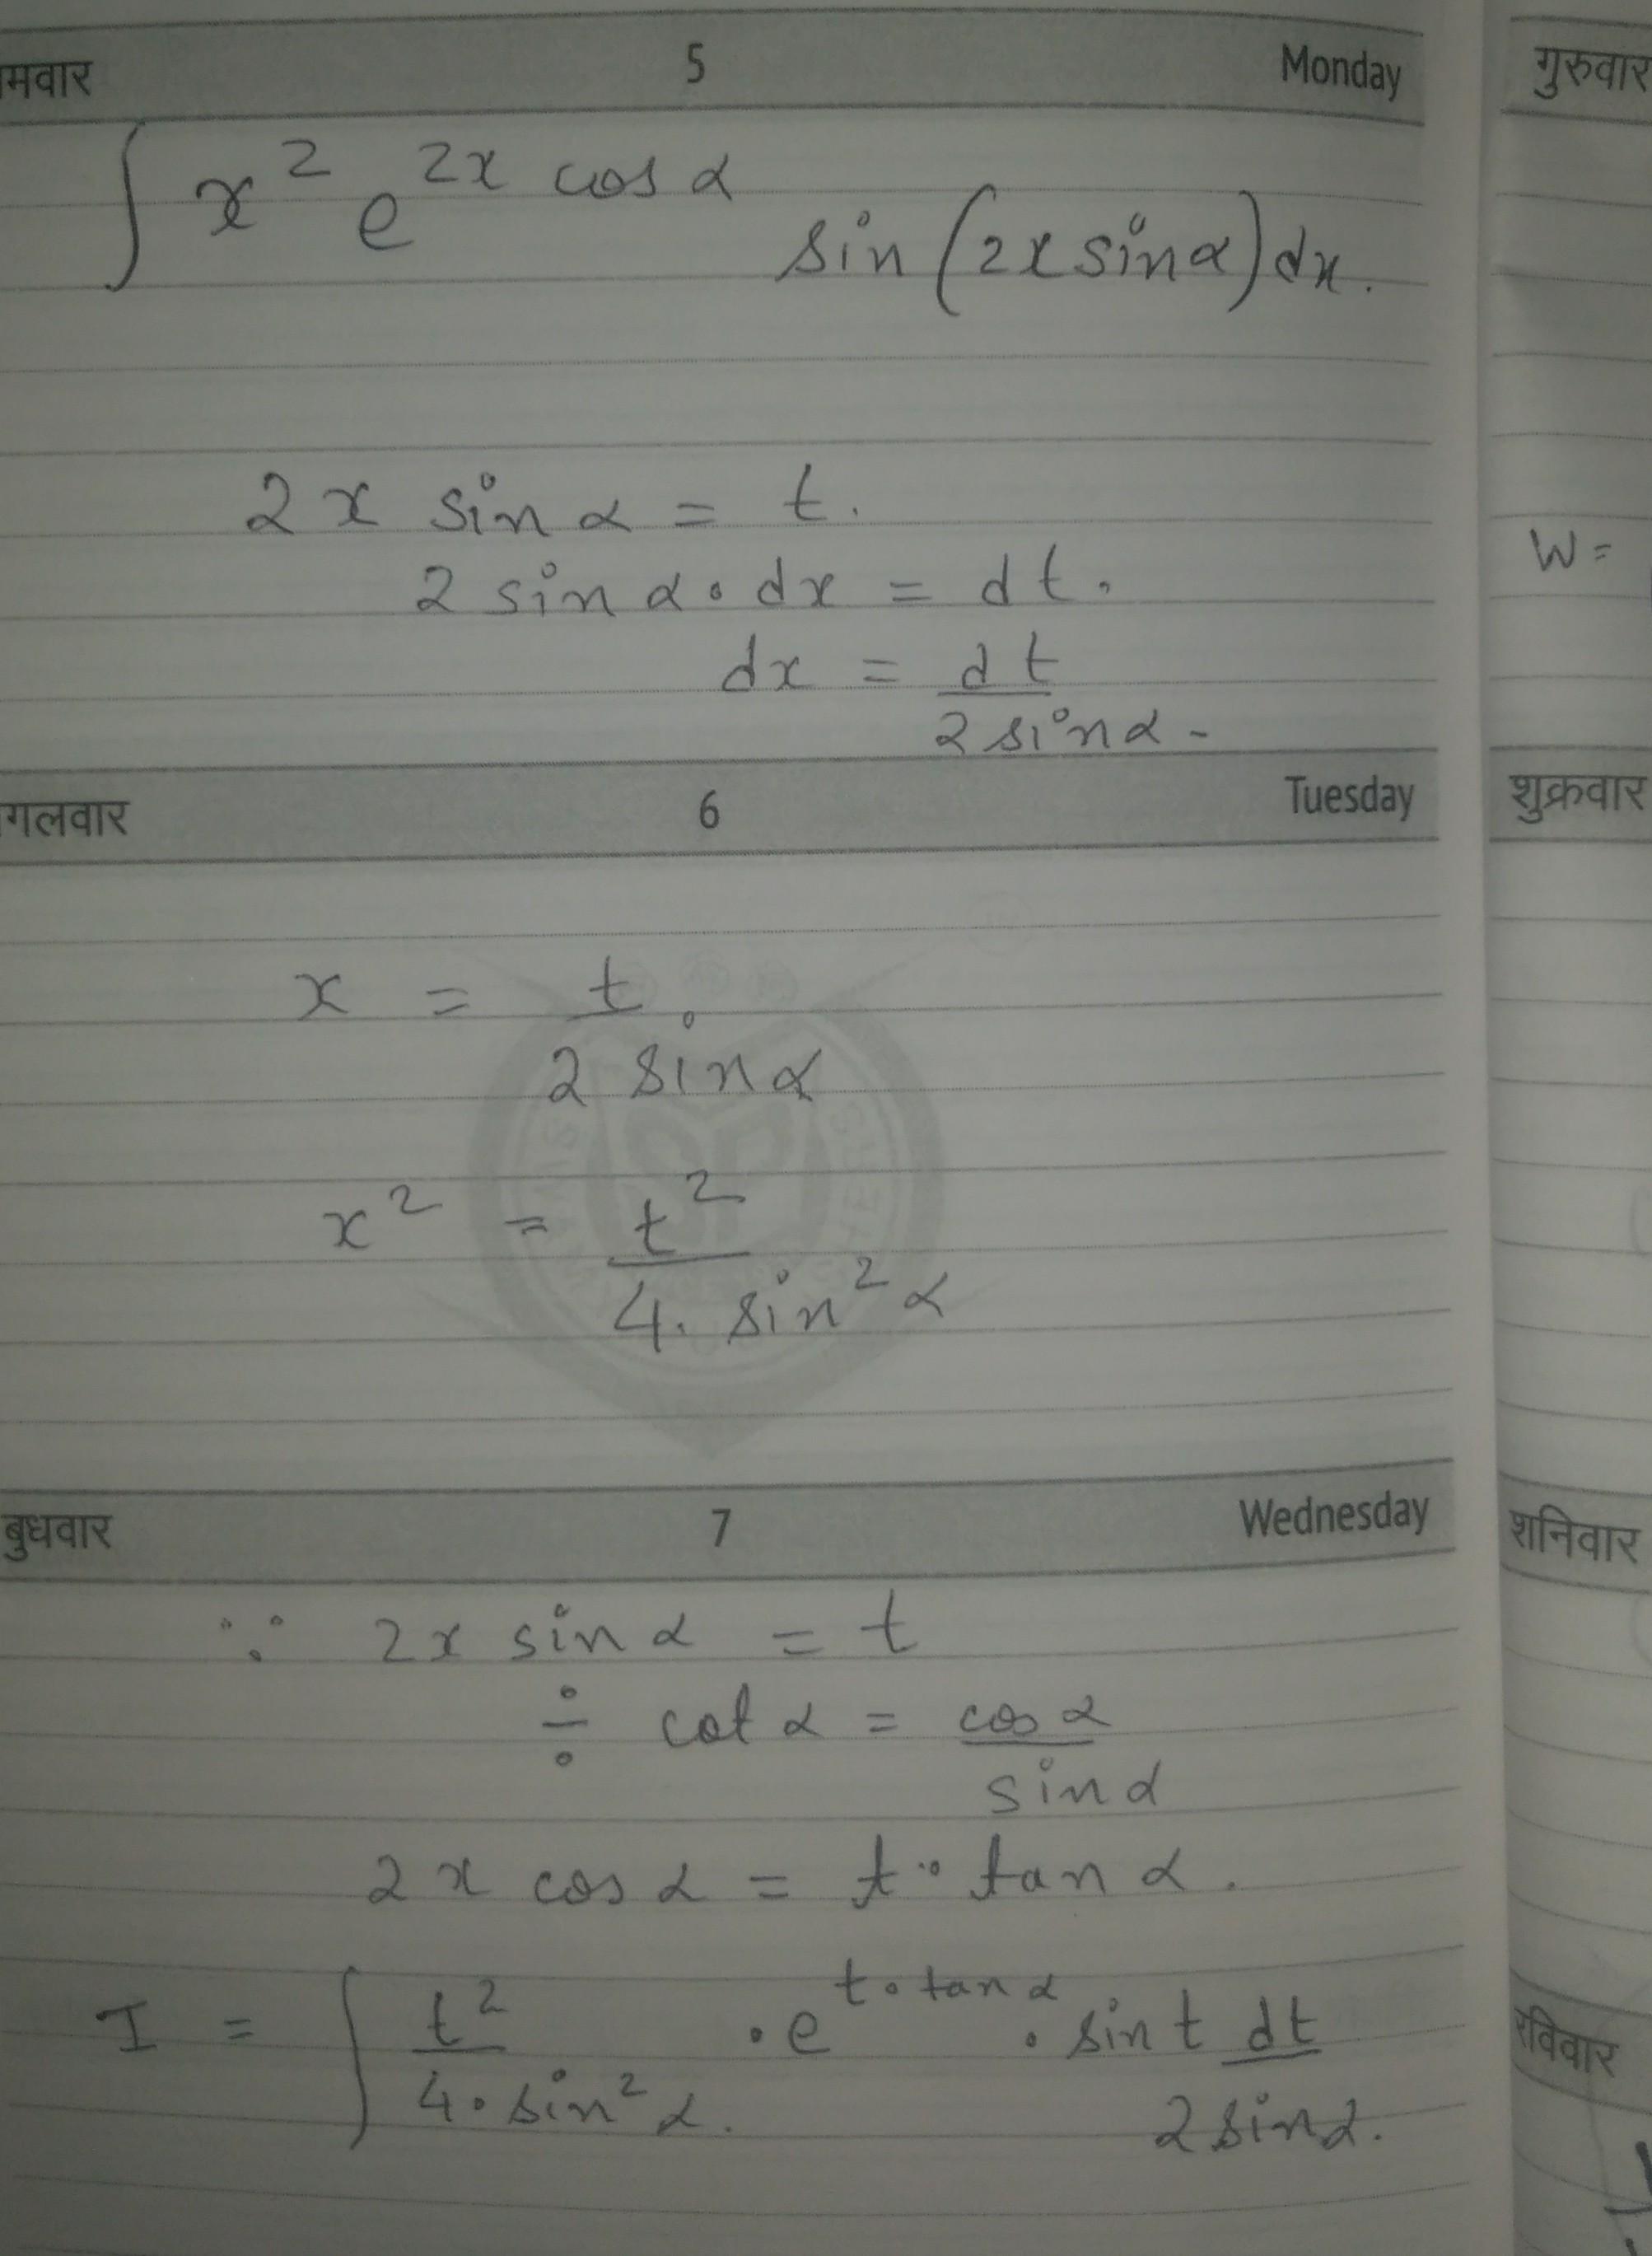 मवार 5 Monday
∫ x² e^{2x cos α} sin (2x sin α) dx.
2x sin α = t.
2 sin α . dx = dt.
dx = dt / 2 sin α -
गलवार 6 Tuesday
x = t / 2 sin α
x² = t² / 4. sin² α
बुधवार 7 Wednesday
∵ 2x sin α = t
÷ cot α = cos α / sin α
2x cos α = t . tan α.
I = ∫ t² / 4. sin² α. . e^{t . tan α} . sin t dt / 2 sin α.
गुरुवार
W =
शुक्रवार
शनिवार
रविवार